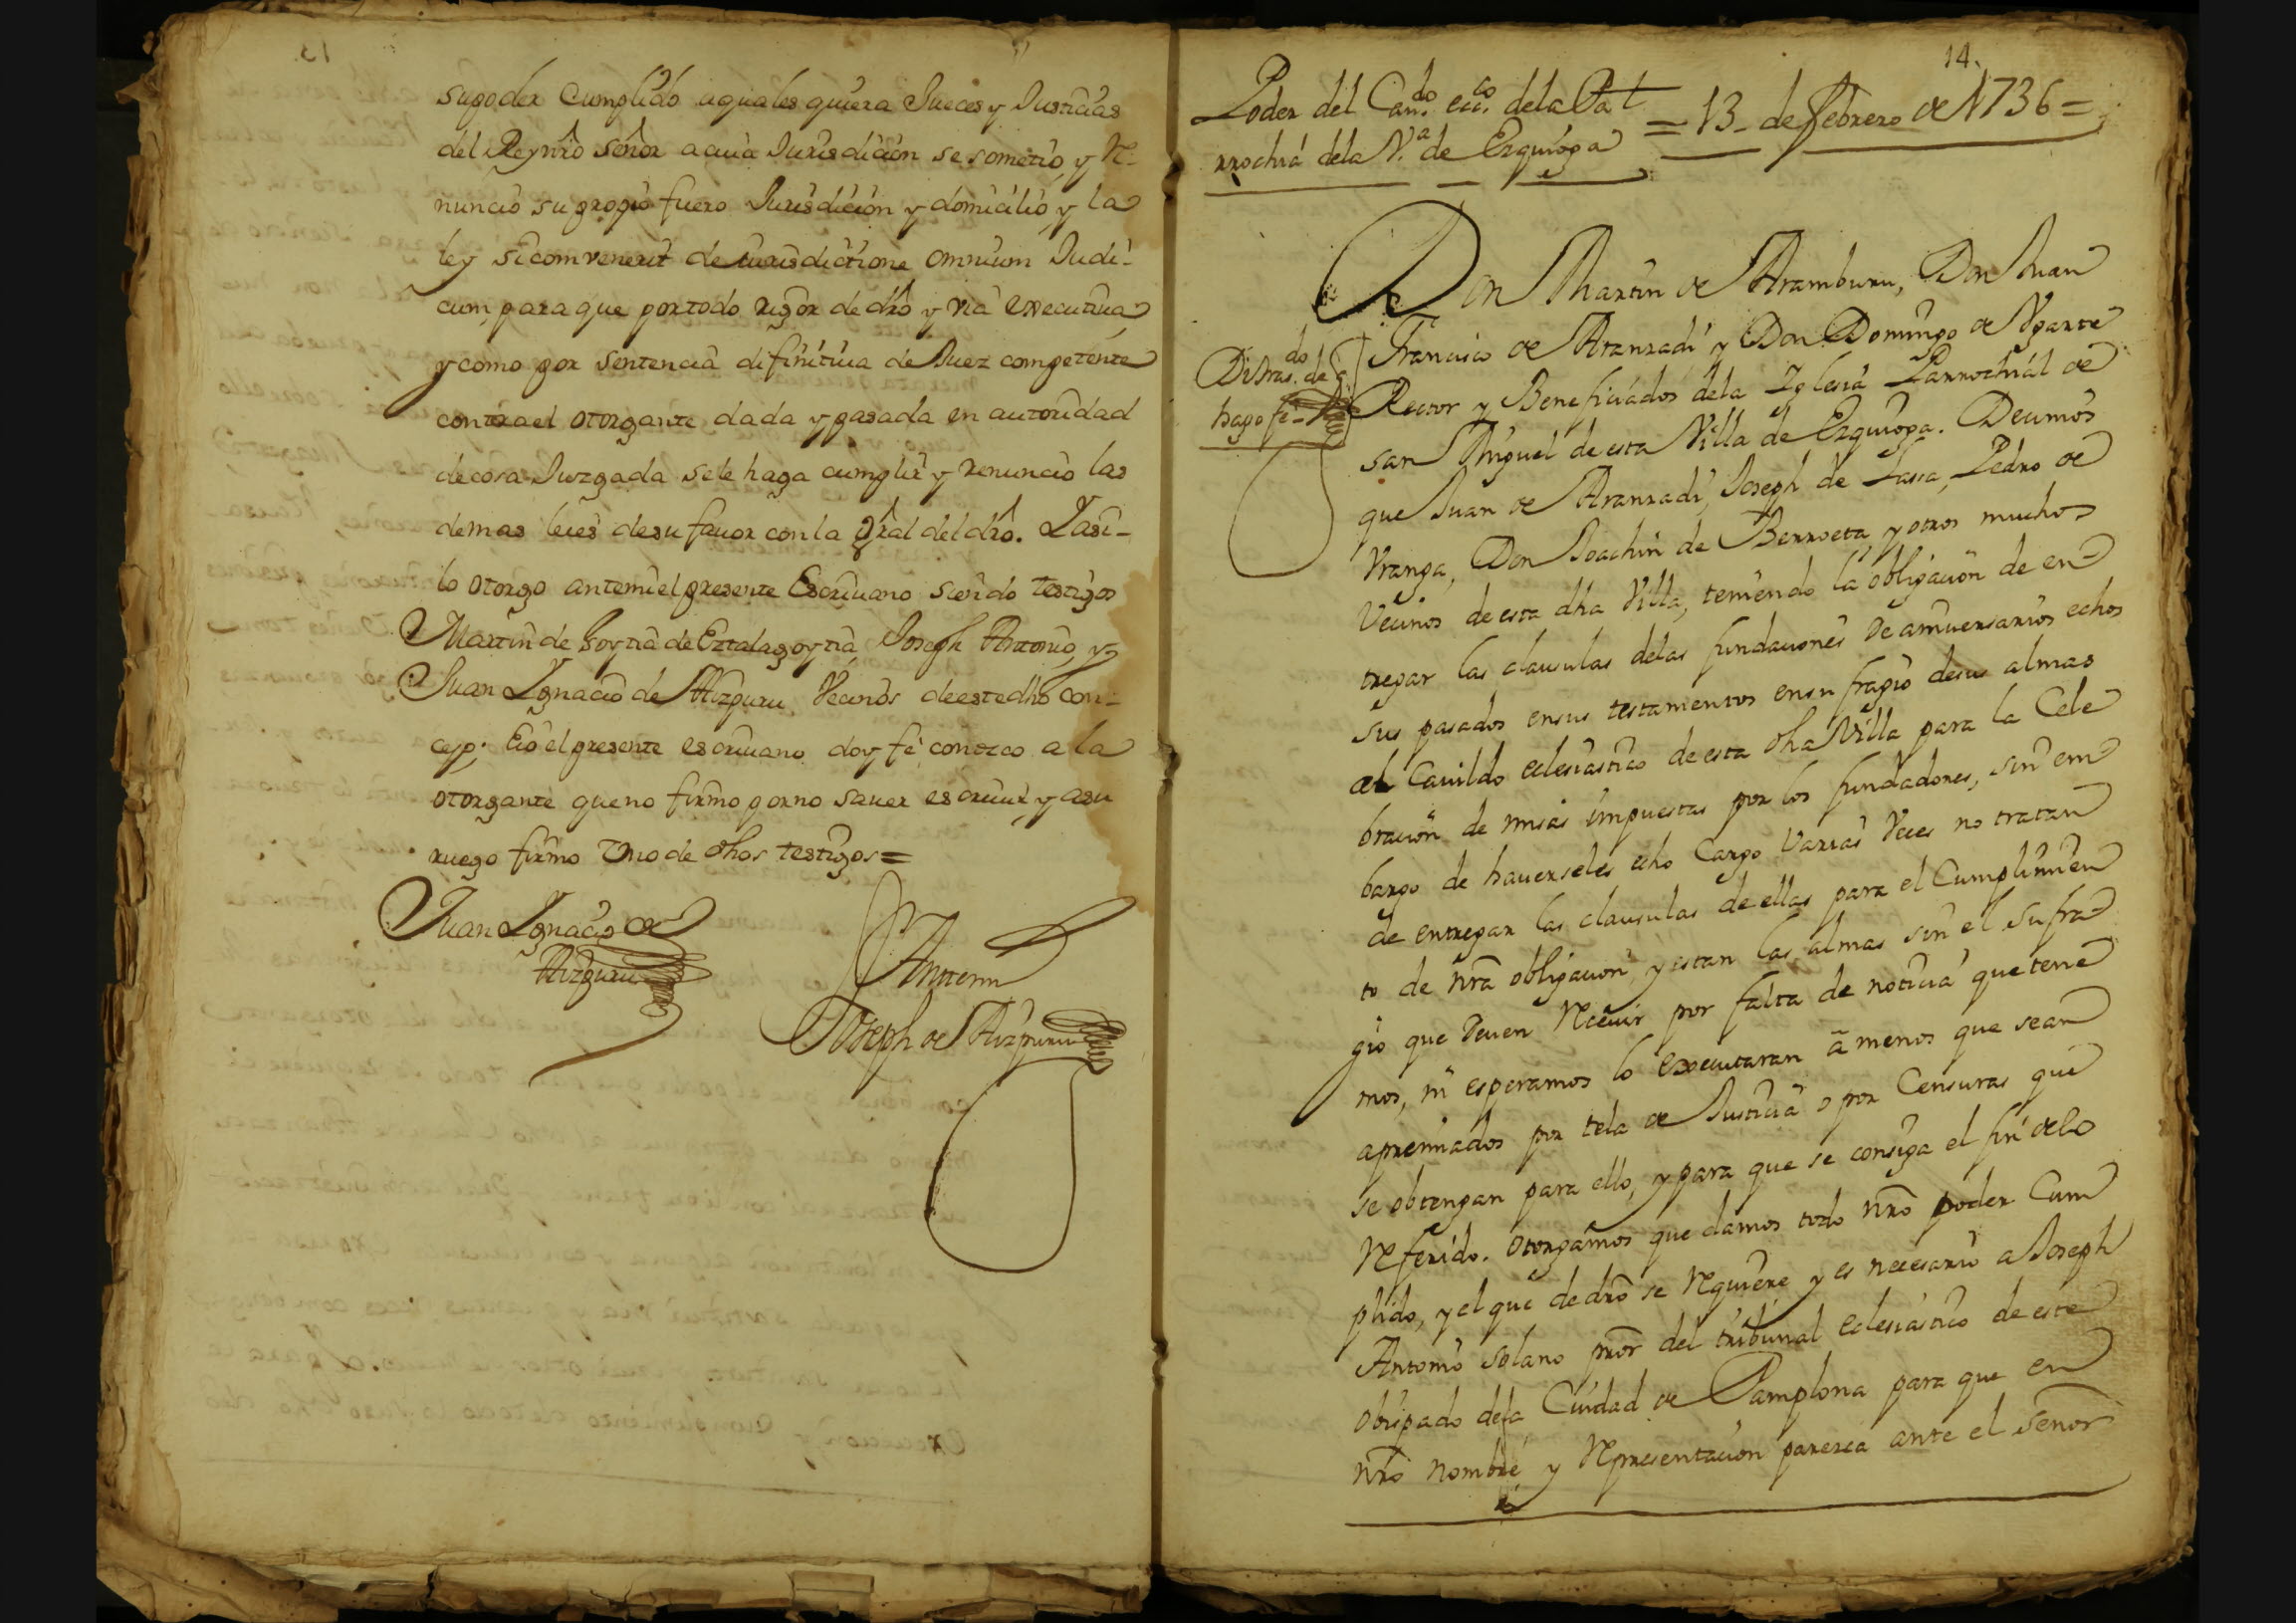 su poder Cumplido aquales quiera Jueces y Justicias
del Rey nrō Señor a cuia Jurisdicion se sometio, y Re-
nuncio su propio fuero Jurisdicion y domicilio, y la
ley sicomvenerit de iurisdictione omnium Judi-
cum, para que por todo rigor de drō y via executiua,
y como por sentencia difinitiua de Juez competente
contra el otorgante dada y pasada en autoridad
de cosa Juzgada se le haga cumplir y renuncio las
demas leies de su fauor con la grāl del drō. Y asi-
lo otorgo ante mi el presente Escriuano siendo testigos
Martin de Goytia de Eztalagoytia, Joseph Antonio, y
Juan Ygnacio de Aizpuru Vecinos de este dhō con-
cejo; E io el presente escriuano doy fé conozco a la
otorgante que no firmo por no sauer escriuir, y asu
ruego firmo Uno de dhos testigos=
Juan Ygnacio de
Aizpuru
Antemi
Joseph de Aizpuru
14.
Poder del Cauᵈᵒ. eccᶜᵒ. dela Pa
rrochiá dela V.ª de Ezquioga
= 13- de febrero de 1736=
Don Martin de Aramburu, Don Juan
Francisco de Aranzadi y Don Domingo de Ygarte
Rector y Beneficiados dela Yglesia Parrochial de
san Miguel de esta Villa de Ezquioga. Decimos
que Juan de Aranzadi, Joseph de Lasa, Pedro de
Vranga, Don Joachin de Berroeta, y otros muchos
Vecinos de esta dha Villa, teniendo la obligacion de en
tregar las clausulas delas fundaciones de aniuersarios echos
sus pasados ensus testamentos ensufragio desus almas
al Cauildo eclesiastico de esta dha Villa para la Cele
bracion de misas impuestas por los fundadores, sin em
bargo de hauerseles echo Cargo Varias Veces no tratan
de entregar las clausulas de ellas para el Cumplimien
to de nrā obligacion, y estan las almas sin el sufra
gio que deuen Reciuir por falta de noticia que tene
mos, ni esperamos lo executaran ā menos que sean
apremiados por tela de Justicia o por Censuras que
se obtengan para ello, y para que se consiga el fin delo
Referido. Otorgamos que damos todo nrō poder Cum
plido, y el que de drō se Requiere y es necesario a Joseph
Antonio Solano prōr del tribunal eclesiastico de este
obispado dela Ciudad de Pamplona para que en
nrō nombre y Representacion paresca ante el Señor
Di tras.ᵈᵒ de
hago fé-